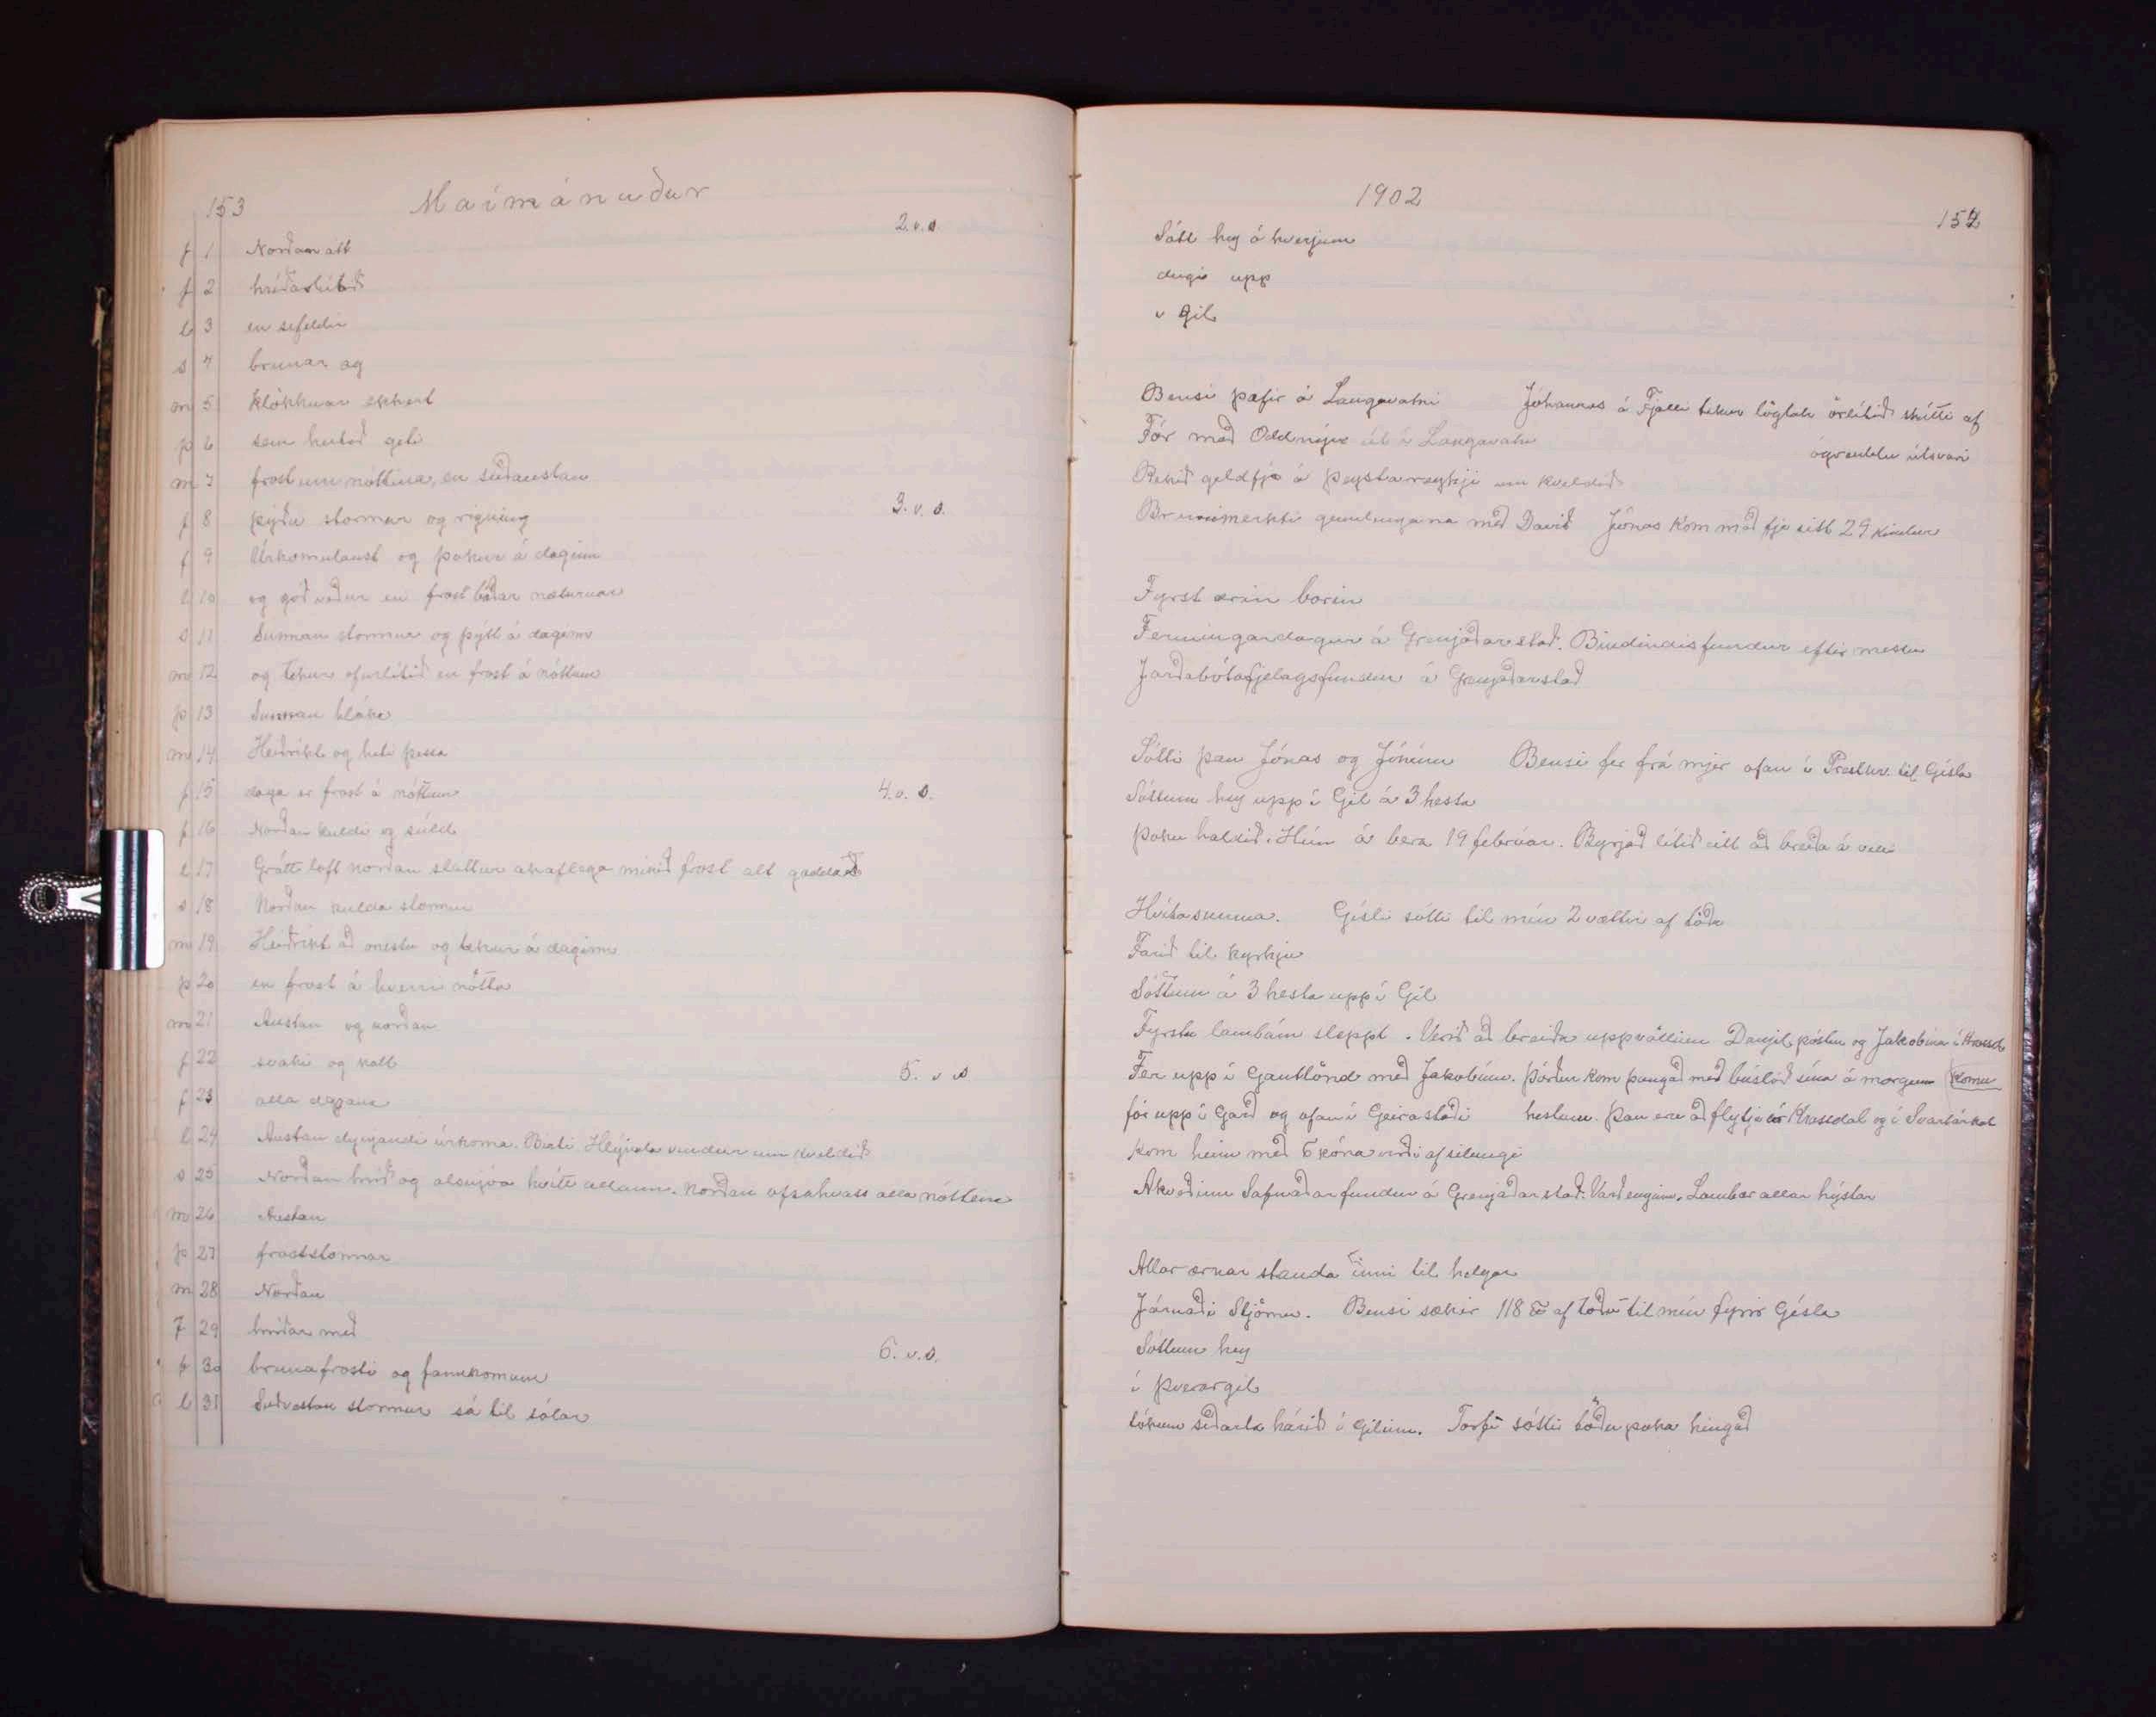 153
Maímánuður
2. v. s.
f 1 Norðan átt
f 2 hríðaslitið
l 3 en sífeldir
s 4 brunar og
m 5 klökknar ekkert
þ 6 sem heitið geti
m 7 frost um nóttina, en suðaustan
f 8 þýðu stormur og rigning 3. v. s.
f 9 Úrkomulaust og þokur á daginn
l 10 og góð veður en frost báðar næturnar
s 11 Sunnan stormur og þýtt á daginn
m 12 og tekur ofurlítið en frost á nóttum
þ 13 Sunnan hláka
m 14 Heiðríkt og hiti þessa
f 15 daga er frost á nóttum 4. v. s.
f 16 Norðan kuldi og súld
l 17 Grátt loft norðan slattur ákaflega mikið frost alt gaddað
s 18 Norðan kulda stormur
m 19 Heiðríkt að mestu og tekur á daginn
þ 20 en frost á hverri nóttu
m 21 Austan og norðan
f 22 svaki og kalt 5. v s
f 23 alla dagana
l 24 Austan dynjandi úrkoma. Birti Hlýinda vindur um kveldið
s 25 Norðan hríð og alsnjóa hvítt allann. Norðan ofsahvass alla nóttina
m 26 Austan
þ 27 froststormar
m 28 Norðan
f 29 hríðar með
f 30 brunafrosti og fannkomum 6. v. s.
l 31 Suðvestan stormur sá til sólar
1902
154
Sótt hey á hverjum
degi upp
í Gil
Bensi þæfir á Langavatni Jóhannes á Fjalli tekur lögtak örlitið skitti af
ógreiddu útsvari
Fór með Oddnýju út í Langavatn
Rekið geldfje á Þeystareykji um kveldið
Brennimerkti gemlingana með Davíð Jónas kom með fje sitt 29 kindur
Fyrst ærin borin
Fermingardagur á Grenjaðarstað. Bindindisfundur eftir messu
Jarðabótafjelagsfundur á Grenjaðarstað
Sótti þau Jónas og Jónínu Bensi fer frá mjer ofan í Presthv. til Gísla
Sóttum hey upp í Gil á 3 hesta
Þoku haldið. Hún á bera 19 febrúar. Byrjað lítið eitt að breiða á völl
Hvítasunna. Gísli sótti til mín 2 vættir af töðu
Farið til kyrkju
Sóttum á 3 hesta upp í Gil
Fyrstu lambám sleppt. Verið að breiða uppvöllinn Daníjel póstur og Jakobína í Hrossd
Fer upp í Gautlönd með Jakobínu. Þórður kom þangað með búslóð sína á morgum komu
fór upp í Garð og ofan í Geirastaði hestum. Þau eru að flytja úr Hrossdal og í Svartárkot
Kom heim með 6 króna virði af silungi
Ákveðinn Safnaðarfundur á Grenjaðarstað. Varð enginn. Lambær allar hýstar
Allar ærnar standa inni til helgar
Járnaði Stjörnu. Bensi sækir 118 ℔ af töðu til mín fyrir Gísla
Sóttum hey
í Þverárgil
tókum síðasta háið í Gilinu. Torfi sótti töðu poka hingað